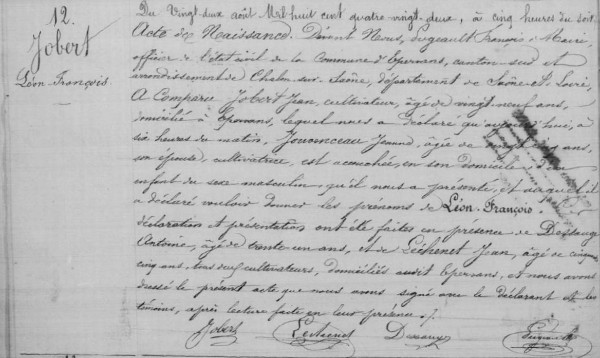 12.
Jobert
Léon François
Du vingt-deux août Mil huit cent quatre-vingt-deux, à cinq heures du soir
Acte de Naissance. Devant Nous, François Marie
officier de l'état civil de la Commune d'Epervans, canton sud et
arrondissement de Chalon-sur-Saône, département de Saône-et-Loire,
A Comparu Jobert Jean, cultivateur, âgé de vingt-neuf ans,
domicilié à Epervans, lequel nous a déclaré qu'aujourd'hui, à
six heures du matin, Jeanne, âgée de vingt ans,
son épouse, cultivatrice, est accouchée, en son domicile, d'un
enfant du sexe masculin, qu'il nous a présenté, et auquel il
a déclaré vouloir donner les prénoms de Léon François.
déclaration et présentation ont été faites en présence de
Antoine, âgé de trente un ans, et de Léchenet Jean, âgé de cinquante
cinq ans, tous deux cultivateurs, domiciliés audit Epervans, et nous avons
dressé le présent acte que nous avons signé avec le déclarant et les
témoins, après lecture faite en leur présence.
Jobert